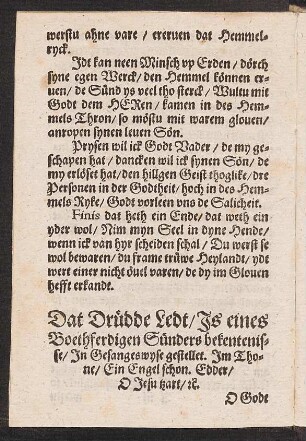 werstu ahne vare / ererven dat Hemmel-
ryck.
Idt kan neen Minsch vp Erden / dörch
syne egen Werck / den Hemmel können er-
uen / de Sünd ys veel tho sterck / Wultu mit
Godt dem HERen / kamen in des Hem-
mels Thron / so möstu mit warem glouen /
anropen synen leuen Sön.
Prysen wil ick Godt Vader / de my ge-
schapen hat / dancken wil ick synen Sön / de
my erlöset hat / den hilligen Geist thoglike / dre
Personen in der Godtheit / hoch in des Hem-
mels Ryke / Godt vorleen vns de Salicheit.
Finis dat heth ein Ende / dat weth ein
yder wol / Nim myn Seel in dyne Hende /
wenn ick van hyr scheiden schal / Du werst se
wol bewaren / du frame trüwe Heylandt / ydt
wert einer nicht övel varen / de dy im Glouen
hefft erkandt.
Dat Drüdde Ledt / Is eines
Boethferdigen Sünders bekentenis-
se / In Gesangeswyse gestellet. Im Tho-
ne / Ein Engel schon. Edder /
O Jesu tzart / ꝛc.
O Godt